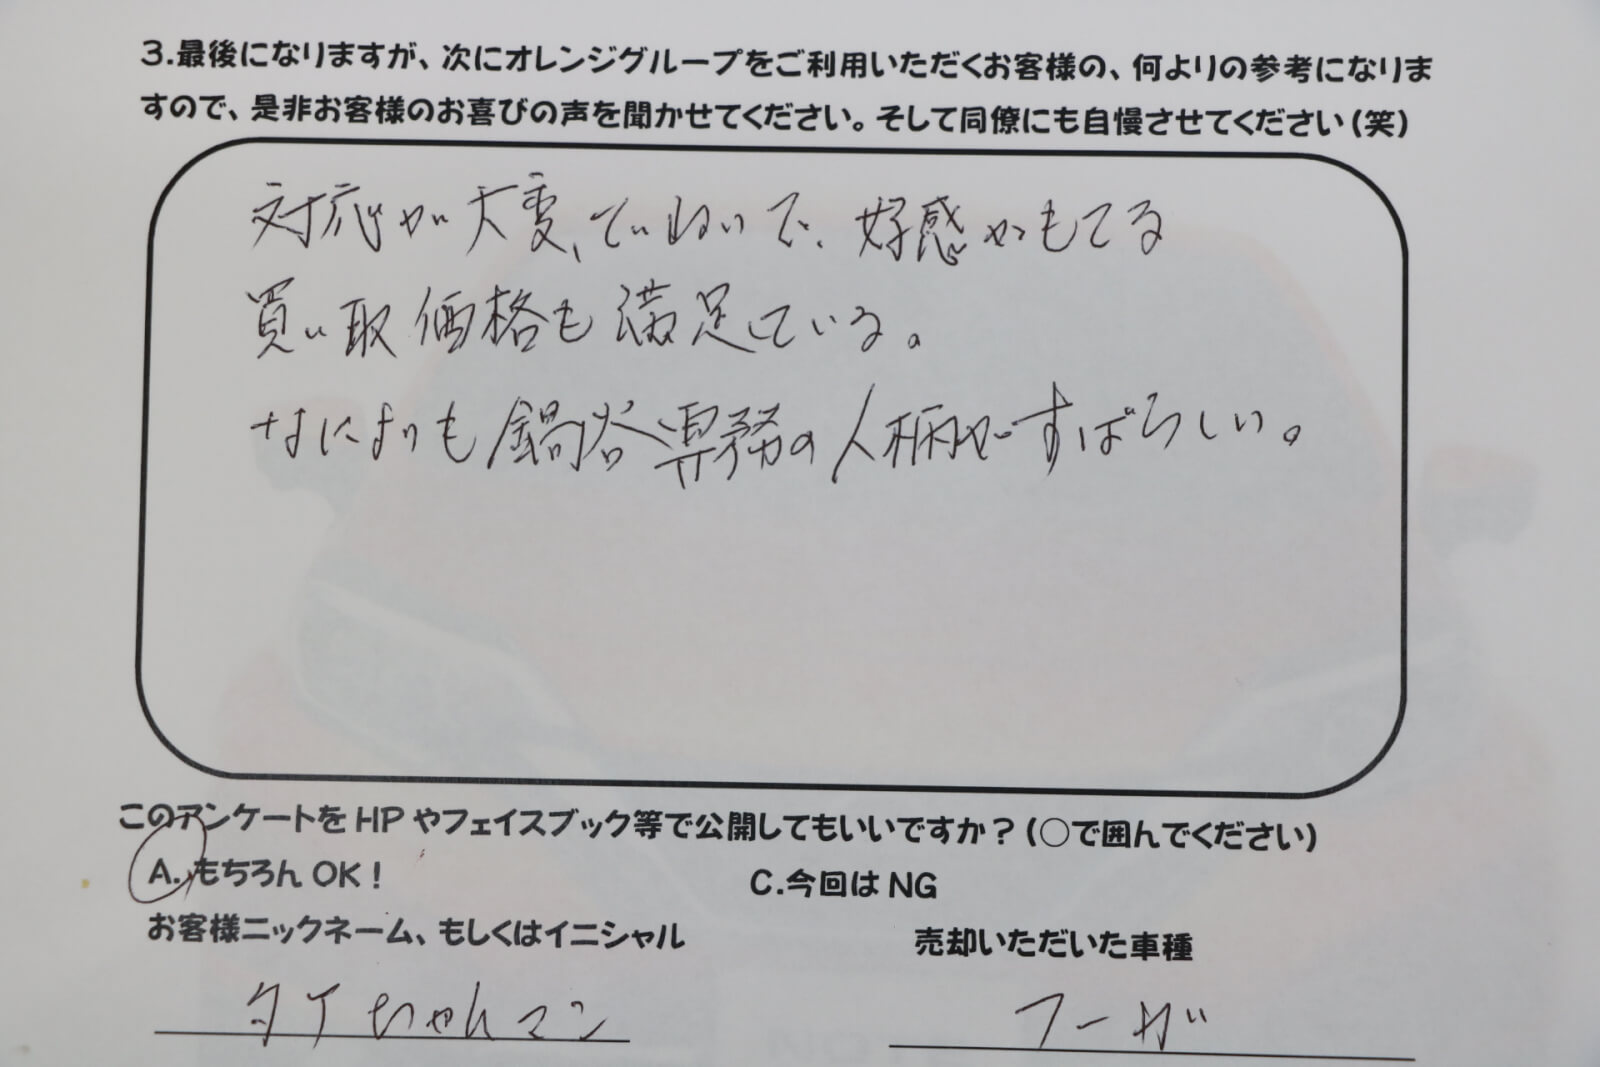 3.最後になりますが、次にオレンジグループをご利用いただくお客様の、何よりの参考になりま
すので、是非お客様のお喜びの声を聞かせてください。そして同僚にも自慢させてください(笑)
対応が大変、ていねいで、好感がもてる
買い取価格も満足している。
なによりも鍋谷専務の人柄がすばらしい。
このアンケートをHPやフェイスブック等で公開してもいいですか?(○で囲んでください)
A.もちろんOK! C.今回はNG
お客様ニックネーム、もしくはイニシャル 売却いただいた車種
タイちゃんマン フーガ